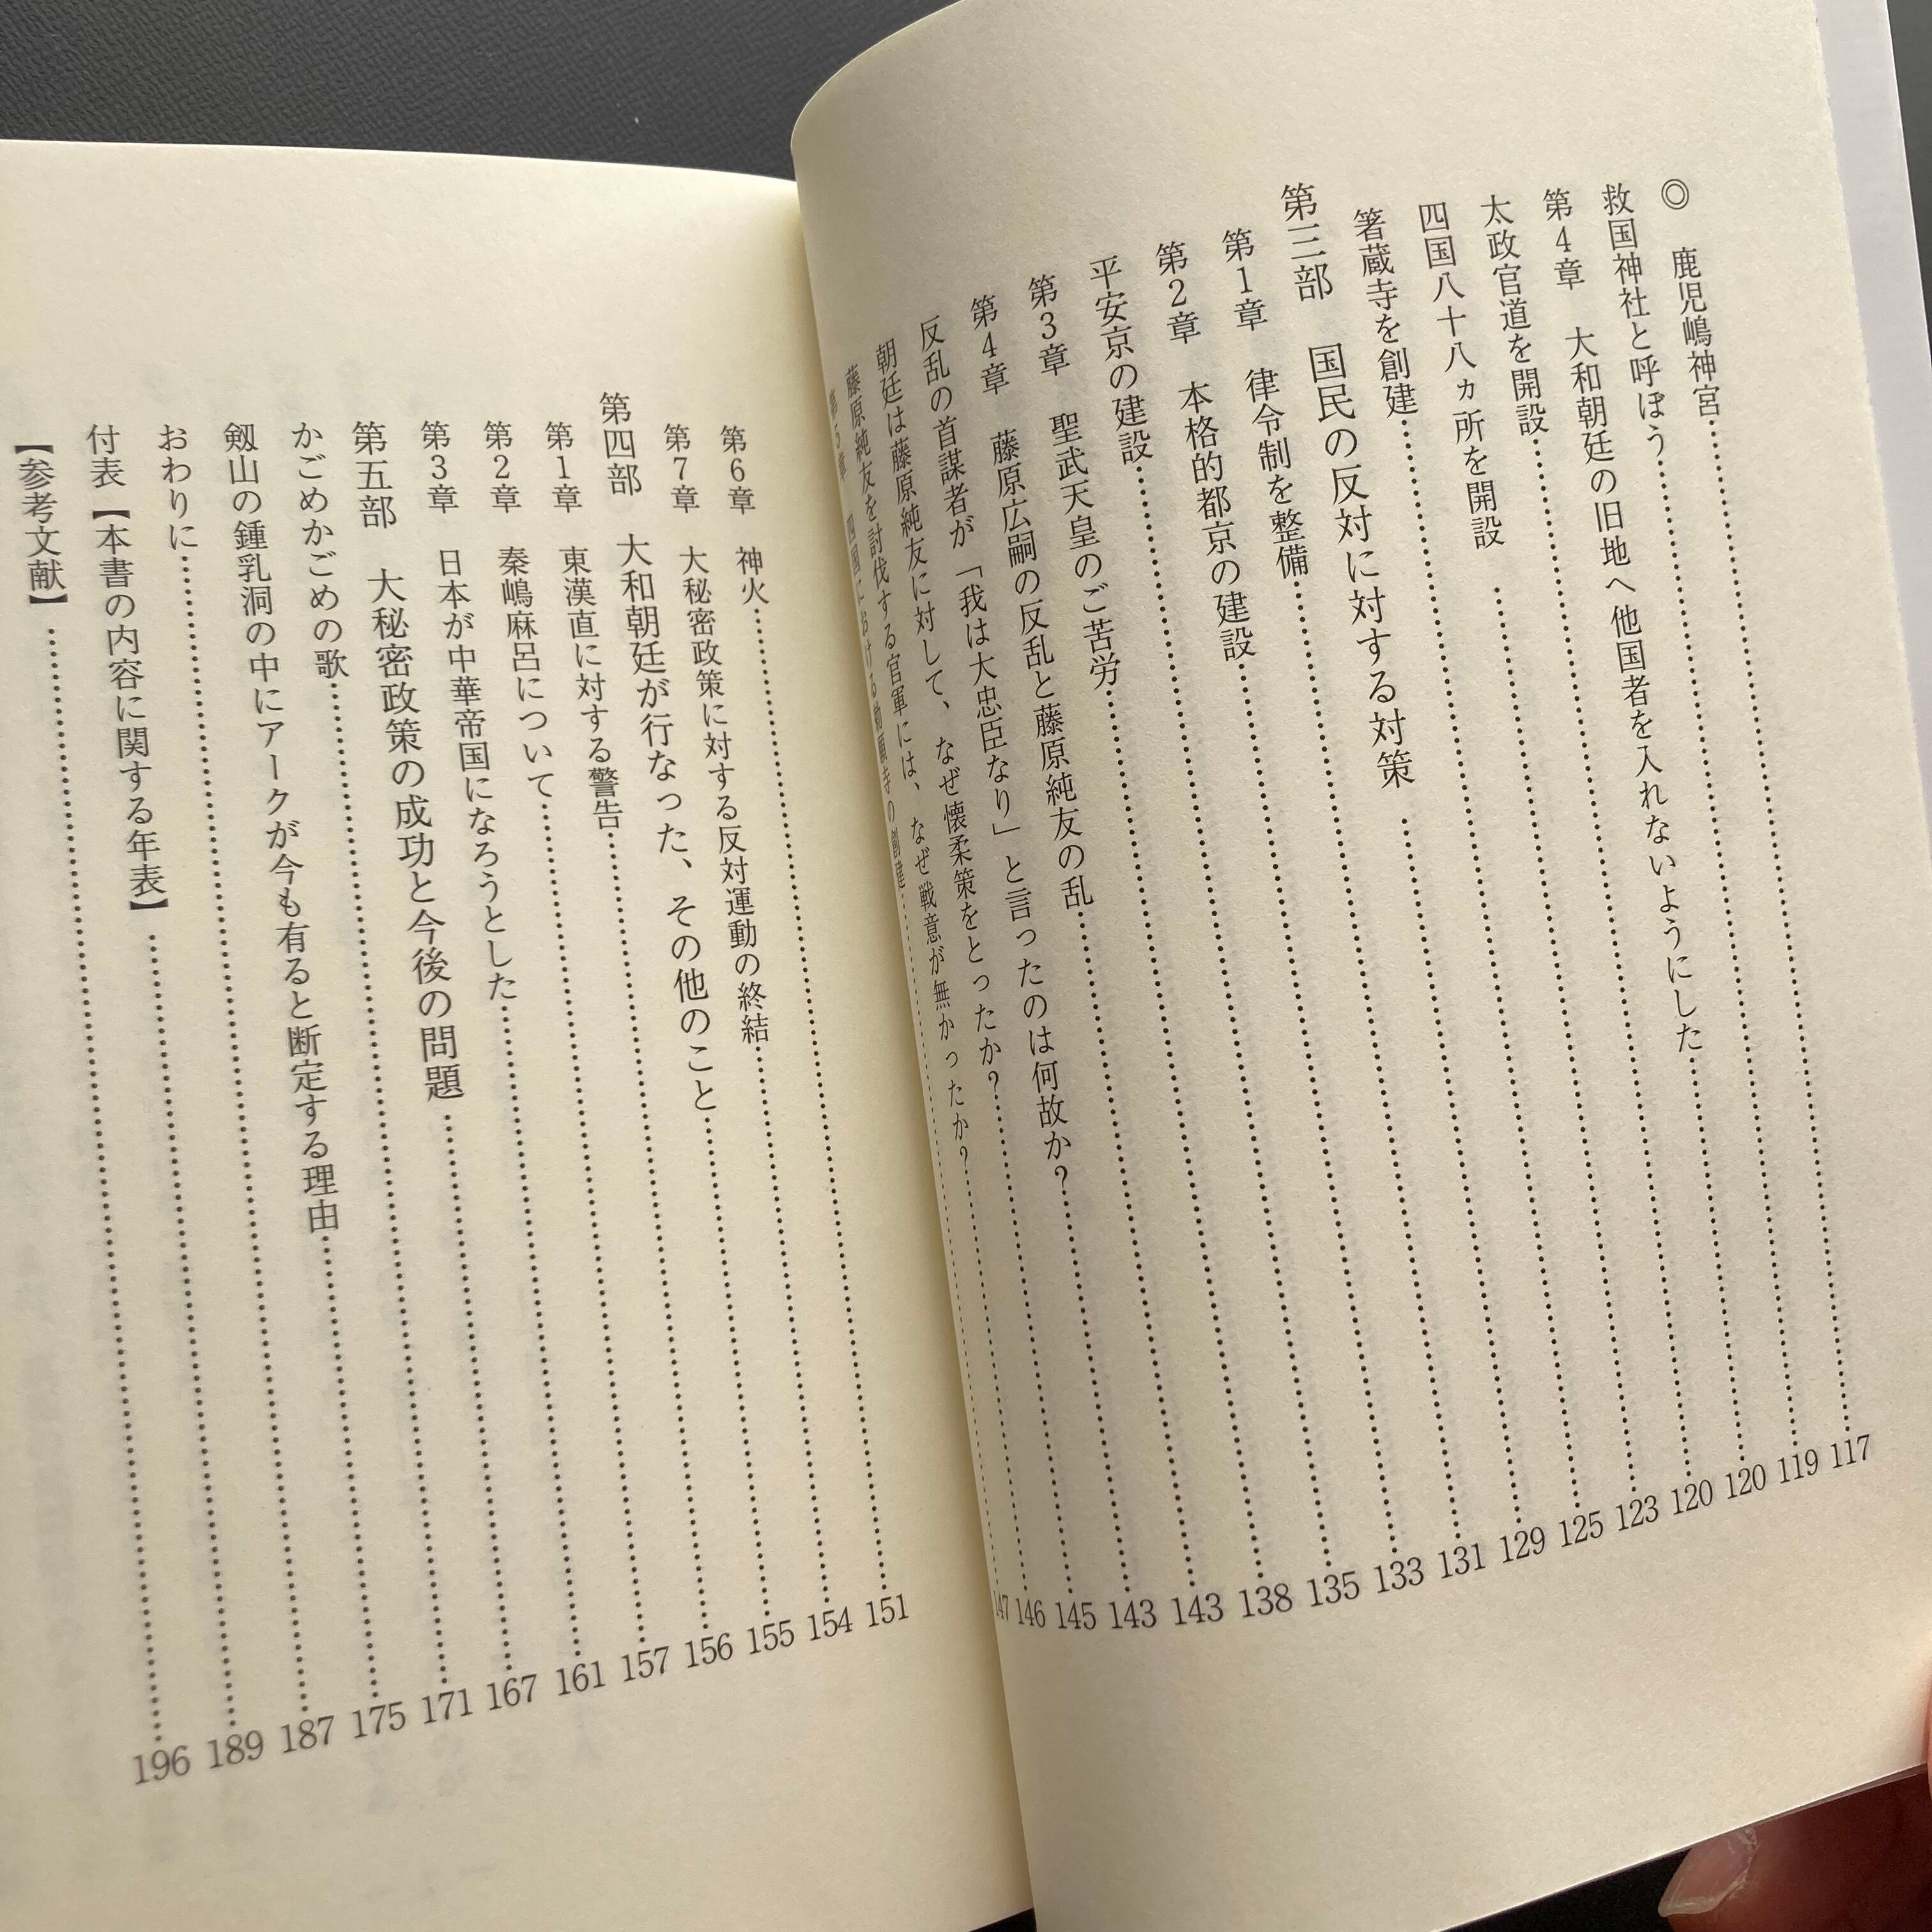 ◎ 鹿児嶋神宮……117
救国神社と呼ぼう……119
第4章 大和朝廷の旧地へ他国者を入れないようにした……120
太政官道を開設……120
四国八十八ヵ所を開設……123
箸蔵寺を創建……125
第三部 国民の反対に対する対策……129
第1章 律令制を整備……131
第2章 本格的都京の建設……133
平安京の建設……135
第3章 聖武天皇のご苦労……138
第4章 藤原広嗣の反乱と藤原純友の乱……143
反乱の首謀者が「我は大忠臣なり」と言ったのは何故か?……143
朝廷は藤原純友に対して、なぜ懐柔策をとったか?……145
藤原純友を討伐する官軍には、なぜ戦意が無かったか?……146
第5章 四国における勅願寺の創建……147
第6章 神火……151
第7章 大秘密政策に対する反対運動の終結……154
第四部 大和朝廷が行なった、その他のこと……155
第1章 東漢直に対する警告……156
第2章 秦嶋麻呂について……157
第3章 日本が中華帝国になろうとした……161
第五部 大秘密政策の成功と今後の問題……167
かごめかごめの歌……171
剱山の鍾乳洞の中にアークが今も有ると断定する理由……175
おわりに……187
付表【本書の内容に関する年表】……189
【参考文献】……196